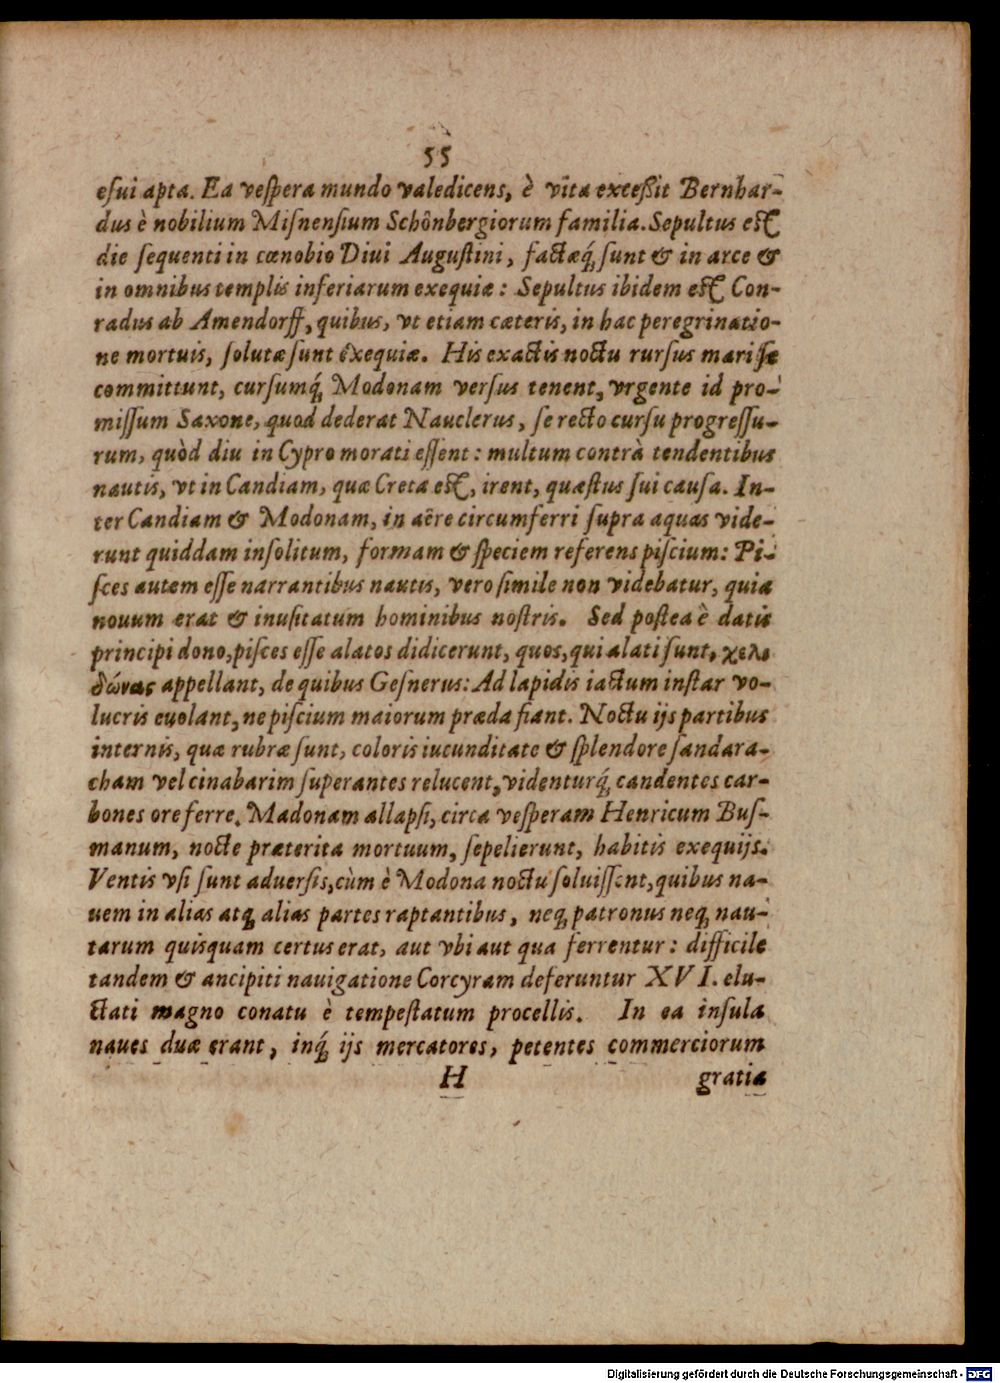 55
eſui apta. Ea veſpera mundo valedicens, è vita exceßit Bernhar-
dus è nobilium Miſnenſium Schônbergiorum familia. Sepultus eſt
die ſequenti in cœnobio Diui Auguſtini, factæq́; ſunt & in arce &
in omnibus templis inferiarum exequiæ: Sepultus ibidem eſt Con-
radus ab Amendorff, quibus, vt etiam cæteris, in hac peregrinatio-
ne mortuis, ſolutæ ſunt exequiæ. His exactis noctu rurſus mari ſe
committunt, curſumq́; Modonam verſus tenent, vrgente id pro-
miſſum Saxone, quod dederat Nauclerus, ſe recto curſu progreſſu-
rum, quòd diu in Cypro morati eſſent: multum contrà tendentibus
nautis, vt in Candiam, quæ Creta eſt, irent, quæſtus ſui cauſa. In-
ter Candiam & Modonam, in aëre circumferri ſupra aquas vide-
runt quiddam inſolitum, formam & ſpeciem referens piſcium: Pi-
ſces autem eſſe narrantibus nautis, vero ſimile non videbatur, quia
nouum erat & inuſitatum hominibus noſtris. Sed poſtea è datis
principi dono, piſces eſſe alatos didicerunt, quos, qui alati ſunt, χελι
δόνας appellant, de quibus Geſnerus: Ad lapidis iactum inſtar vo-
lucris euolant, ne piſcium maiorum præda fiant. Noctu ijs partibus
internis, quæ rubræ ſunt, coloris iucunditate & ſplendore ſandara-
cham vel cinabarim ſuperantes relucent, videnturq́; candentes car-
bones ore ferre. Madonam allapſi, circa veſperam Henricum Buſ-
manum, nocte præterita mortuum, ſepelierunt, habitis exequijs.
Ventis vſi ſunt aduerſis, cùm è Modona noctu ſoluiſſent, quibus na-
uem in alias atq; alias partes raptantibus, neq; patronus neq; nau-
tarum quisquam certus erat, aut vbi aut qua ferrentur: difficile
tandem & ancipiti nauigatione Corcyram deferuntur XVI. elu-
ctati magno conatu è tempeſtatum procellis. In ea inſula
naues duæ erant, inq́; ijs mercatores, petentes commerciorum
H gratia
Digitalisierung gefördert durch die Deutsche Forschungsgemeinschaft - DFG